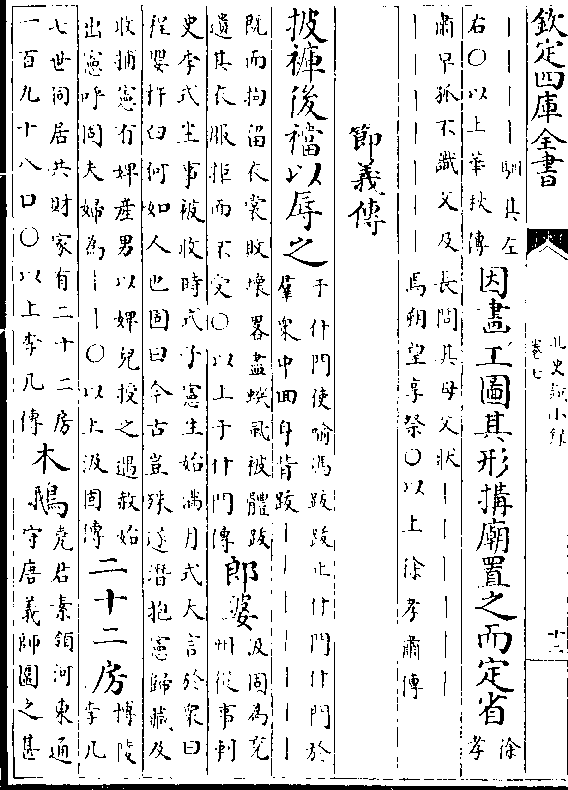 欽定四庫全書
北史識小録
卷七
十二
｜｜｜｜｜馴其左
右○以上華秋傳
因畫工圖其形搆廟置之而定省
徐
孝
肅早孤不識父及長問其母父狀｜｜｜｜｜｜
｜｜｜｜｜｜｜馬朔望享祭○以上徐孝肅傳
節義傳
披褲後襠以辱之
于什門使喻馮跋跋止什門什門於
羣衆中回身背跋｜｜｜｜｜｜
既而拘留衣裳敗壞畧盡蟣蝨被體跋
遺其衣服拒而不受○以上于什門傳
郎婆
汲固為兖
州從事刺
史李式坐事被收時式子憲生始滿月式大言於衆曰
程嬰杵臼何如人也固曰今古豈殊遂潛抱憲歸藏及
收捕憲有婢産男以婢兒授之遇赦始
出憲呼固夫婦為｜｜○以上汲固傳
二十二房
博陵
李几
七世同居共財家有二十二房
一百九十八口○以上李几傳
木鵝
堯君素領河東通
守唐義師圍之甚